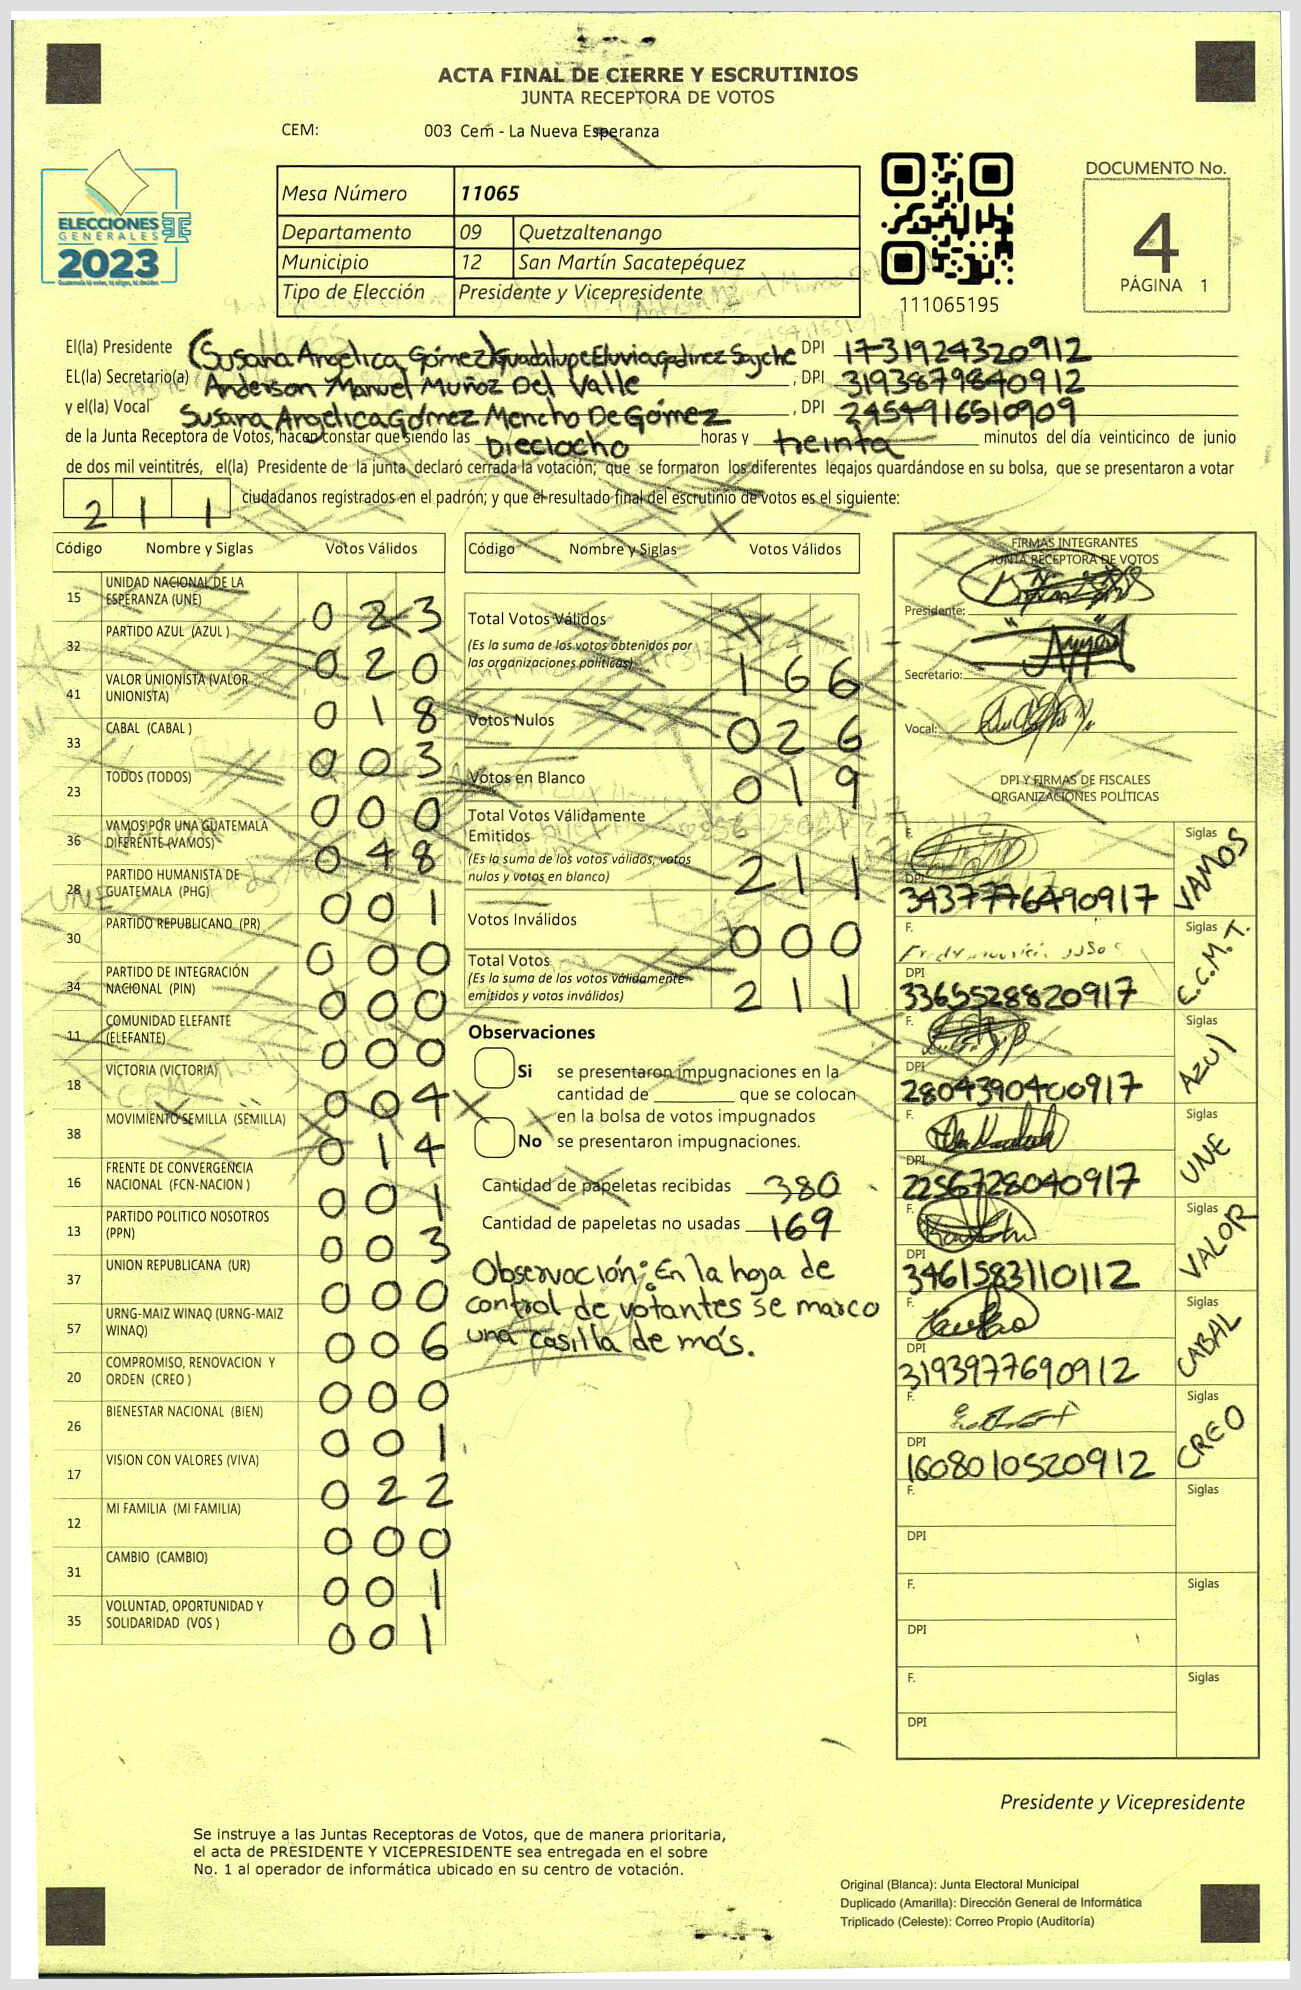 ACTA FINAL DE CIERRE Y ESCRUTINIOS
JUNTA RECEPTORA DE VOTOS
CEM: 003 Cem - La Nueva Esperanza
ELECCIONES
GENERALES
2023
Mesa Número 11065
Departamento 09 Quetzaltenango
Municipio 12 San Martín Sacatepéquez
Tipo de Elección Presidente y Vicepresidente
111065195
DOCUMENTO No.
4
PÁGINA 1
El(la) Presidente (Susana Angelica Gómez) Guadalupe Eluvia Godinez Sajche DPI 1731924320912
EL(la) Secretario(a) Anderson Manuel Muñoz Del Valle , DPI 3193879840912
y el(la) Vocal Susana Angelica Gómez Mencho De Gómez , DPI 2454916510909
de la Junta Receptora de Votos, hacen constar que siendo las Dieciocho horas y treinta minutos del día veinticinco de junio
de dos mil veintitrés, el(la) Presidente de la junta declaró cerrada la votación; que se formaron los diferentes legajos guardándose en su bolsa, que se presentaron a votar
211 ciudadanos registrados en el padrón; y que el resultado final del escrutinio de votos es el siguiente:
Código Nombre y Siglas Votos Válidos
15 UNIDAD NACIONAL DE LA ESPERANZA (UNE) 023
32 PARTIDO AZUL (AZUL ) 020
41 VALOR UNIONISTA (VALOR UNIONISTA) 018
33 CABAL (CABAL ) 003
23 TODOS (TODOS) 000
36 VAMOS POR UNA GUATEMALA DIFERENTE (VAMOS) 048
28 PARTIDO HUMANISTA DE GUATEMALA (PHG) 001
30 PARTIDO REPUBLICANO (PR) 000
34 PARTIDO DE INTEGRACIÓN NACIONAL (PIN) 000
11 COMUNIDAD ELEFANTE (ELEFANTE) 000
18 VICTORIA (VICTORIA) 004
38 MOVIMIENTO SEMILLA (SEMILLA) 014
16 FRENTE DE CONVERGENCIA NACIONAL (FCN-NACION ) 001
13 PARTIDO POLITICO NOSOTROS (PPN) 003
37 UNION REPUBLICANA (UR) 000
57 URNG-MAIZ WINAQ (URNG-MAIZ WINAQ) 006
20 COMPROMISO, RENOVACION Y ORDEN (CREO ) 000
26 BIENESTAR NACIONAL (BIEN) 001
17 VISION CON VALORES (VIVA) 022
12 MI FAMILIA (MI FAMILIA) 000
31 CAMBIO (CAMBIO) 001
35 VOLUNTAD, OPORTUNIDAD Y SOLIDARIDAD (VOS ) 001
Código Nombre y Siglas Votos Válidos
Total Votos Válidos
(Es la suma de los votos obtenidos por
las organizaciones políticas) 166
Votos Nulos 026
Votos en Blanco 019
Total Votos Válidamente
Emitidos
(Es la suma de los votos válidos, votos
nulos y votos en blanco) 211
Votos Inválidos 000
Total Votos
(Es la suma de los votos válidamente
emitidos y votos inválidos) 211
Observaciones
Si se presentaron impugnaciones en la
cantidad de ________ que se colocan
en la bolsa de votos impugnados
No se presentaron impugnaciones.
Cantidad de papeletas recibidas 380
Cantidad de papeletas no usadas 169
Observación: En la hoja de
control de votantes se marco
una casilla de más.
FIRMAS INTEGRANTES
JUNTA RECEPTORA DE VOTOS
Presidente:
Secretario:
Vocal:
DPI Y FIRMAS DE FISCALES
ORGANIZACIONES POLÍTICAS
F. Siglas VAMOS
DPI 3437776490917
F. Siglas C.C.M.T.
DPI 3365528820917
F. Siglas AZUl
DPI 2804390400917
F. Siglas UNE
DPI 2256728040917
F. Siglas VALOR
DPI 3461583110112
F. Siglas CABAL
DPI 3193977690912
F. Siglas CREO
DPI 1608010520912
F. Siglas
DPI
F. Siglas
DPI
F. Siglas
DPI
Presidente y Vicepresidente
Se instruye a las Juntas Receptoras de Votos, que de manera prioritaria,
el acta de PRESIDENTE Y VICEPRESIDENTE sea entregada en el sobre
No. 1 al operador de informática ubicado en su centro de votación.
Original (Blanca): Junta Electoral Municipal
Duplicado (Amarilla): Dirección General de Informática
Triplicado (Celeste): Correo Propio (Auditoría)